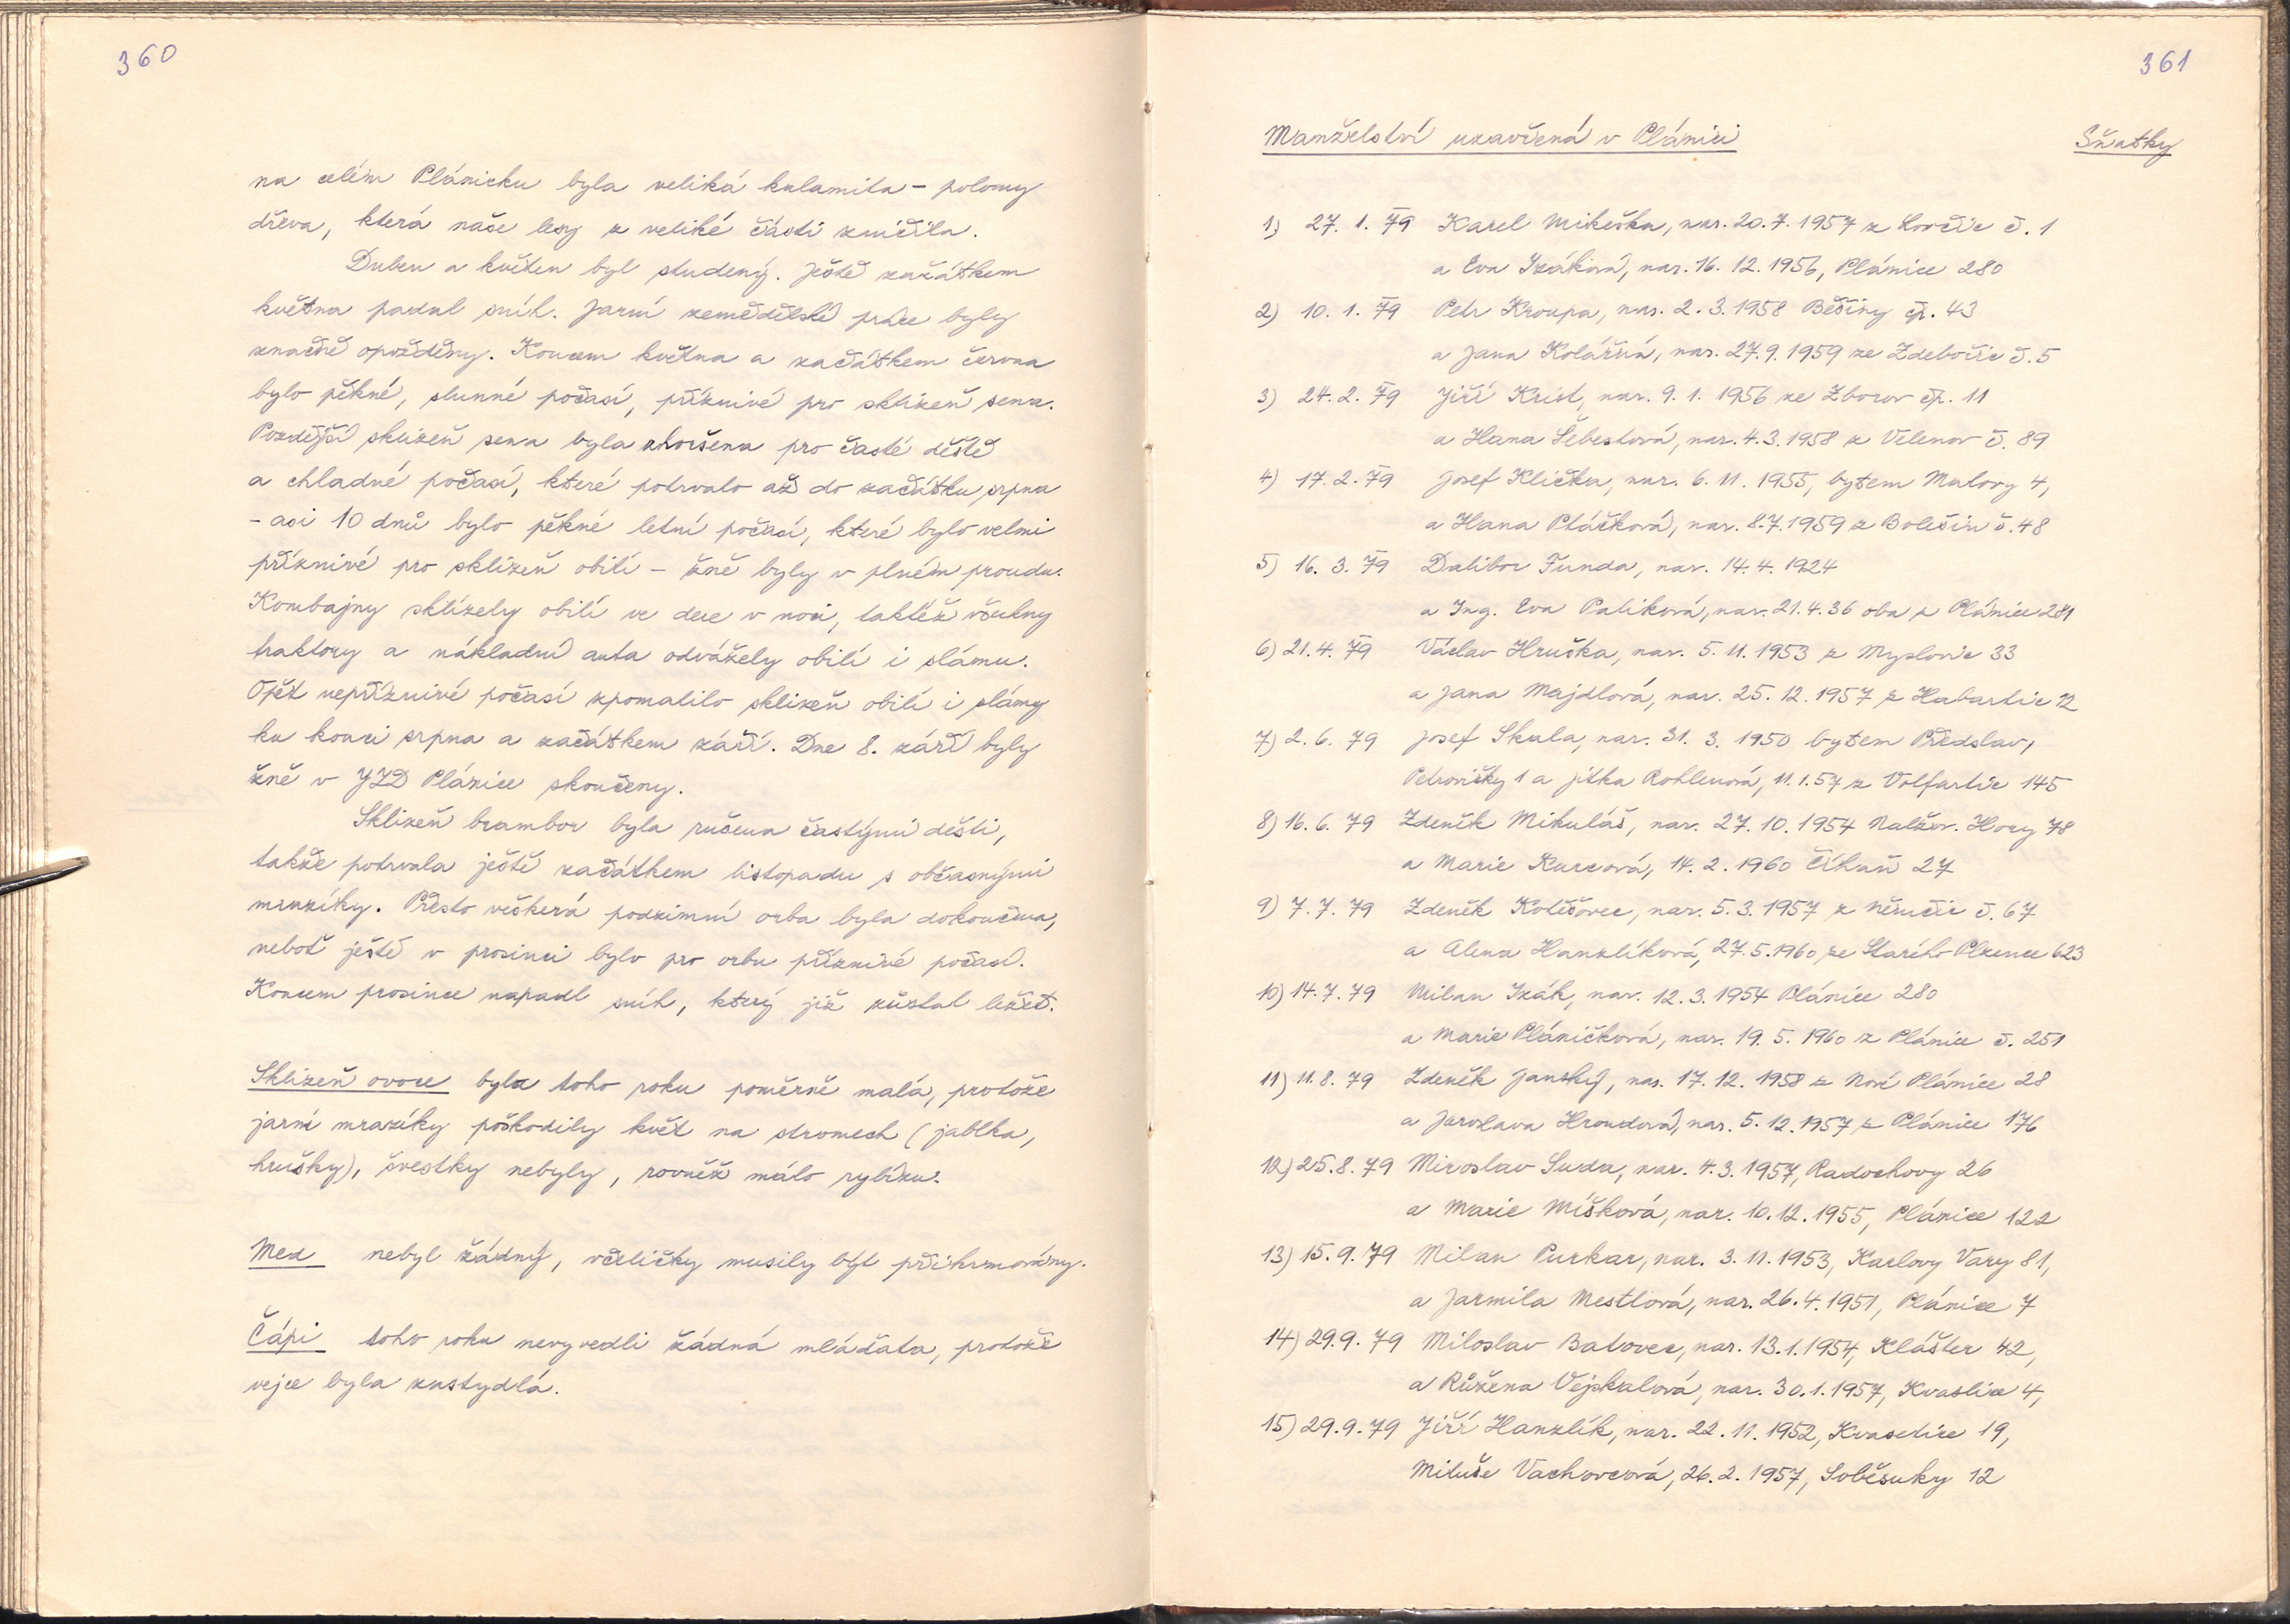 360
na celém Plánicku byla veliká kalamita - polomy
dřeva, která naše lesy z veliké části zničila.
Duben a květen byl studený. Ještě začátkem
května padal sníh. Jarní zemědělské práce byly
značně opožděny. Koncem května a začátkem června
bylo pěkné, slunné počasí, příznivé pro sklizeň sena.
Pozdější sklizeň sena byla zhoršena pro časté deště
a chladné počasí, které potrvalo až do začátku srpna
- asi 10 dnů bylo pěkné letní počasí, které bylo velmi
příznivé pro sklizeň obilí - žně byly v plném proudu.
Kombajny sklízely obilí ve dne v noci, taktéž všechny
traktory a nákladní auta odvážely obilí i slámu.
Opět nepříznivé počasí zpomalilo sklizeň obilí i slámy
ku konci srpna a začátkem září. Dne 8. září byly
žně v JZD Plánice skončeny.
Sklizeň brambor byla rušena častými dešti,
takže potrvala ještě začátkem listopadu s občasnými
mrazíky. Přesto veškerá podzimní orba byla dokončena,
neboť ještě v prosinci bylo pro orbu příznivé počasí.
Koncem prosince napadl sníh, který již zůstal ležet.
Sklizeň ovoce byla toho roku poměrně malá, protože
jarní mrazíky poškodily květ na stromech (jablka,
hrušky), švestky nebyly, rovněž málo rybízu.
Med nebyl žádný, včeličky musily být přikrmovány.
Čápi toho roku nevyvedli žádná mláďata, protože
vejce byla zastydlá.
361
Manželství uzavřená v Plánici
Sňatky
1) 27. 1. 79 Karel Mikeška, nar. 20. 7. 1957 z Lovčic č. 1
a Eva Izáková, nar. 16. 12. 1956, Plánice 280
2) 10. 1. 79 Petr Kroupa, nar. 2. 3. 1958 Běšiny čp. 43
a Jana Kolářová, nar. 27. 9. 1959 ze Zdebořic č. 5
3) 24. 2. 79 Jiří Krist, nar. 9. 1. 1956 ze Zborov čp. 11
a Hana Šebestová, nar. 4. 3. 1958 z Velenov č. 89
4) 17. 2. 79 Josef Klička, nar. 6. 11. 1955, bytem Mlatovy 4,
a Hana Ptáčková, nar. 8. 7. 1959 z Bolešin č. 48
5) 16. 3. 79 Dalibor Funda, nar. 14. 4. 1924
a Ing. Eva Paliková, nar. 21. 4. 36 oba z Plánice 281
6) 21. 4. 79 Václav Hruška, nar. 5. 11. 1953 z Myslovic 33
a Jana Majdlová, nar. 25. 12. 1957 z Habartic 12
7) 2. 6. 79 Josef Skala, nar. 31. 3. 1950 bytem Předslav,
Petrovičky 1 a Jitka Rohlenová, 11. 1. 57 z Volfartic 145
8) 16. 6. 79 Zdeněk Mikuláš, nar. 27. 10. 1954 Nalžov. Hory 78
a Marie Kurcová, 14. 2. 1960 Číhaň 27
9) 7. 7. 79 Zdeněk Kotěšovec, nar. 5. 3. 1957 z Němčic č. 67
a Alena Hanzlíková, 27. 5. 1960 ze Starého Plzence 623
10) 14. 7. 79 Milan Izák, nar. 12. 3. 1954 Plánice 280
a Marie Pláničková, nar. 19. 5. 1960 z Plánice č. 251
11) 11. 8. 79 Zdeněk Janský, nar. 17. 12. 1958 z Nové Plánice 28
a Jaroslava Hroudová, nar. 5. 12. 1957 z Plánice 176
12) 25. 8. 79 Miroslav Suda, nar. 4. 3. 1957, Radochovy 26
a Marie Míšková, nar. 10. 12. 1955, Plánice 122
13) 15. 9. 79 Milan Purkar, nar. 3. 11. 1953, Karlovy Vary 81,
a Jarmila Mestlová, nar. 26. 4. 1951, Plánice 7
14) 29. 9. 79 Miloslav Batovec, nar. 13. 1. 1954, Klášter 42,
a Růžena Vejskalová, nar. 30. 1. 1957, Kvaslice 4,
15) 29. 9. 79 Jiří Hanzlík, nar. 22. 11. 1952, Kvasetice 19,
Miluše Vachovcová, 26. 2. 1957, Soběsuky 12